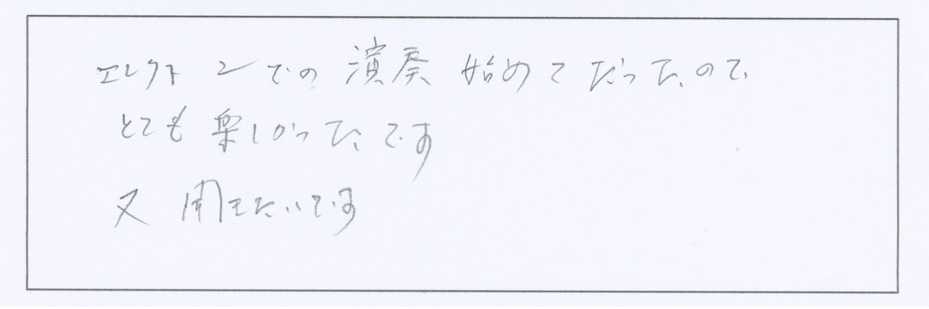 エレクトーンでの演奏 始めてだったので
とても楽しかったです
又 聞きたいです